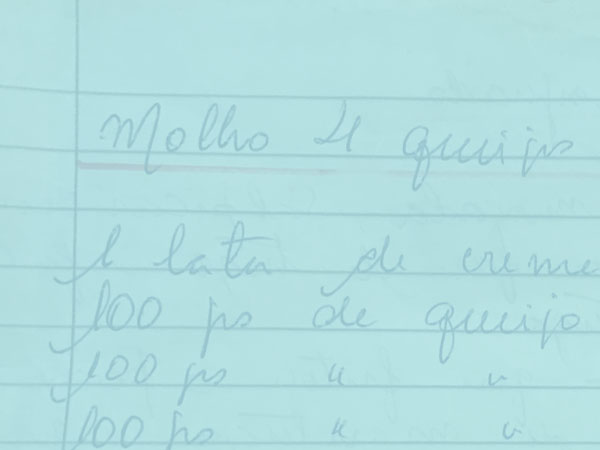 Molho 4 queijos
1 lata de creme
100 gs de queijo
100 gs " "
100 gs " "